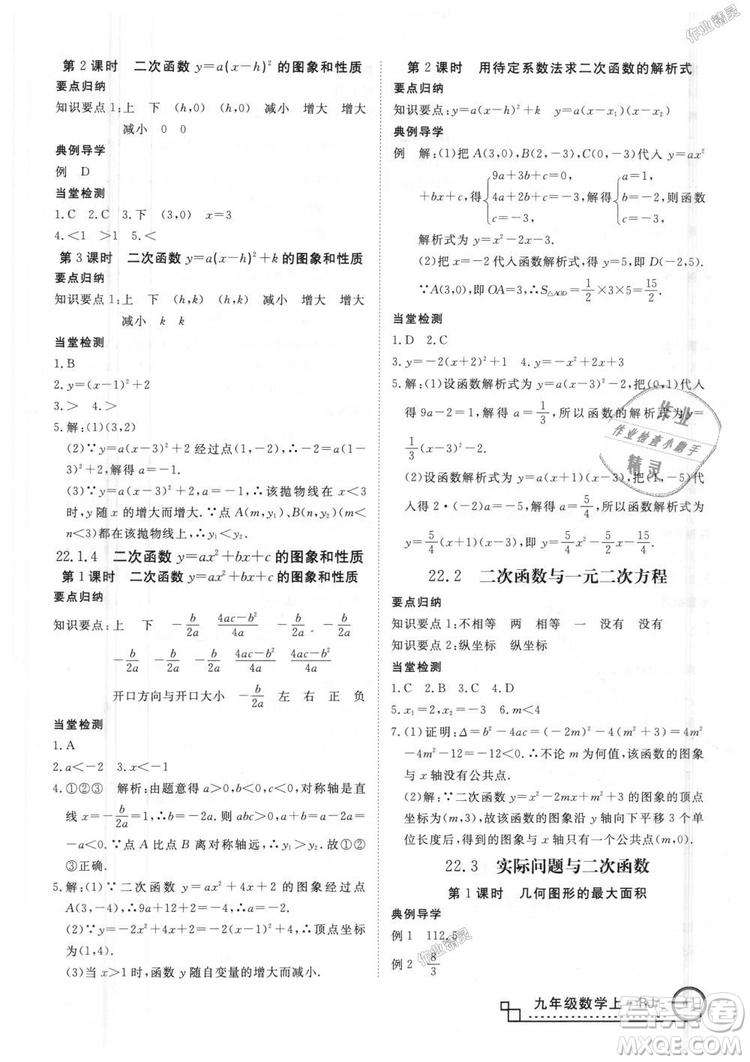 第2课时　二次函数 y=a(x-h)² 的图象和性质
要点归纳
知识要点1:上　下　(h,0)　(h,0)　减小　增大　增大
减小　0　0
典例导学
例　D
当堂检测
1.C　2.C　3.下　(3,0)　x=3
4.<1　>1　5.<
第3课时　二次函数 y=a(x-h)²+k 的图象和性质
要点归纳
知识要点1:上　下　(h,k)　(h,k)　减小　增大　增大
减小　k　k
当堂检测
1.B
2.y=(x-1)²+2
3.>　4.>
5.解:(1)(3,2)
(2)∵y=a(x-3)²+2经过点(1,-2),∴-2=a(1-3)²+2,解得a=-1.
(3)∵y=-(x-3)²+2,∴该抛物线在x<3时,y随x的增大而增大.∵点A(m,y₁)、B(n,y₂)(m<n<3)都在该抛物线上,∴y₁<y₂.
22.1.4　二次函数 y=ax²+bx+c 的图象和性质
第1课时　二次函数 y=ax²+bx+c 的图象和性质
要点归纳
知识要点:上　下　-b/2a　(4ac-b²)/4a　(4ac-b²)/4a
-b/2a　-b/2a　(4ac-b²)/4a　-b/2a　-b/2a　(4ac-b²)/4a
开口方向与开口大小　-b/2a　左　右　正　负
当堂检测
1.A
2.a<-2　3.x<-1
4.①②③　解析:由题意可得a>0,c<0,∵对称轴是直
线x=-b/2a=1,∴b=-2a.则abc>0,a+b=a-2a=
-a<0.∵点A比点B离对称轴远,∴y₁>y₂.故①②
③正确.
5.解:(1)∵二次函数y=ax²+4x+2的图象经过点
A(3,-4),∴9a+12+2=-4,∴a=-2.
(2)∵y=-2x²+4x+2=-2(x-1)²+4,∴直线x=1.
(3)当x>1时,函数y随自变量的增大而减小.
第2课时　用待定系数法求二次函数的解析式
要点归纳
知识要点:y=a(x-h)²+k　y=a(x-x₁)(x-x₂)
典例导学
例　解:(1)把A(3,0),B(2,-3),C(0,-3)代入y=ax²
+bx+c,得{9a+3b+c=0, 4a+2b+c=-3, c=-3,解得{a=1, b=-2, c=-3,则函数
解析式为y=x²-2x-3.
(2)把x=-2代入函数解析式得y=5,即D(-2,5).
∵A(3,0),即OA=3,∴S△AOD=1/2×3×5=15/2.
当堂检测
1.D　2.C
3.y=-2(x+2)²+1　4.y=-x²+2x+3
5.解:(1)设函数解析式为y=a(x-3)²-2,把(0,1)代入
得9a-2=1,解得a=1/3,所以函数解析式为y=
1/3(x-3)²-2.
(2)设函数解析式为y=a(x+1)(x-3),把(1,-5)代
入得2·(-2)·a=-5,解得a=5/4,所以函数解析式为
y=5/4(x+1)(x-3),即y=5/4x²-5/2x-15/4.
22.2　二次函数与一元二次方程
要点归纳
知识要点1:不相等　两　相等　一　没有
知识要点2:纵坐标　纵坐标
当堂检测
1.C　2.D　3.C　4.-1
5.x₁=2,x₂=-4　6.m<4
7.(1)证明:Δ=b²-4ac=(-2m)²-4(m²+3)=4m²
-4m²-12=-12<0.∴不论m为何值,该函数的图象
与x轴没有公共点.
(2)解:∵y=x²-2mx+m²+3=(x-m)²+3,∴顶点
坐标为(m,3).∴把该函数的图象沿y轴向下平移3个单
位长度后,得到的图象与x轴只有一个公共点(m,0).
22.3　实际问题与二次函数
第1课时　几何图形的最大面积
典例导学
例1　112.5
例2　8/3
九年级数学上·RJ
作业精灵
作业
作业检查小助手
精灵
答案圈
MXQE.COM